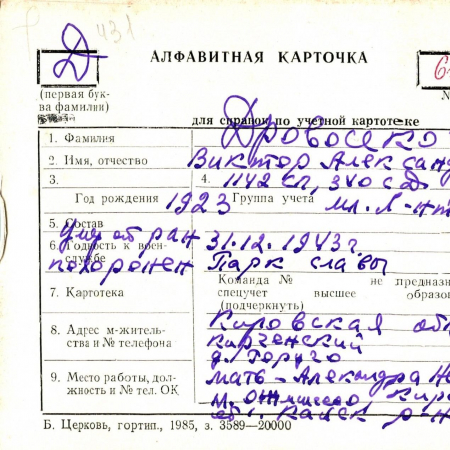 431
Д
АЛФАВИТНАЯ КАРТОЧКА
(первая бук-
ва фамилии)
для справок по учетной картотеке
1. Фамилия Дровосеко
2. Имя, отчество Виктор Александ
3. 4. 1142 сп, 340 сд
Год рождения 1923 Группа учета мл. л-нт
5. Состав
Умер от ран 31.12.1943 г.
6. Годность к воен-
службе
похоронен Парк славы
Команда № не предназна
7. Картотека спецучет высшее образо
(подчеркнуть)
8. Адрес м-житель-
ства и № телефона
Кировская обл
9. Место работы, дол-
жность и № тел. ОК
мать - Александра
Б. Церковь, гортип., 1985, з. 3589—20000